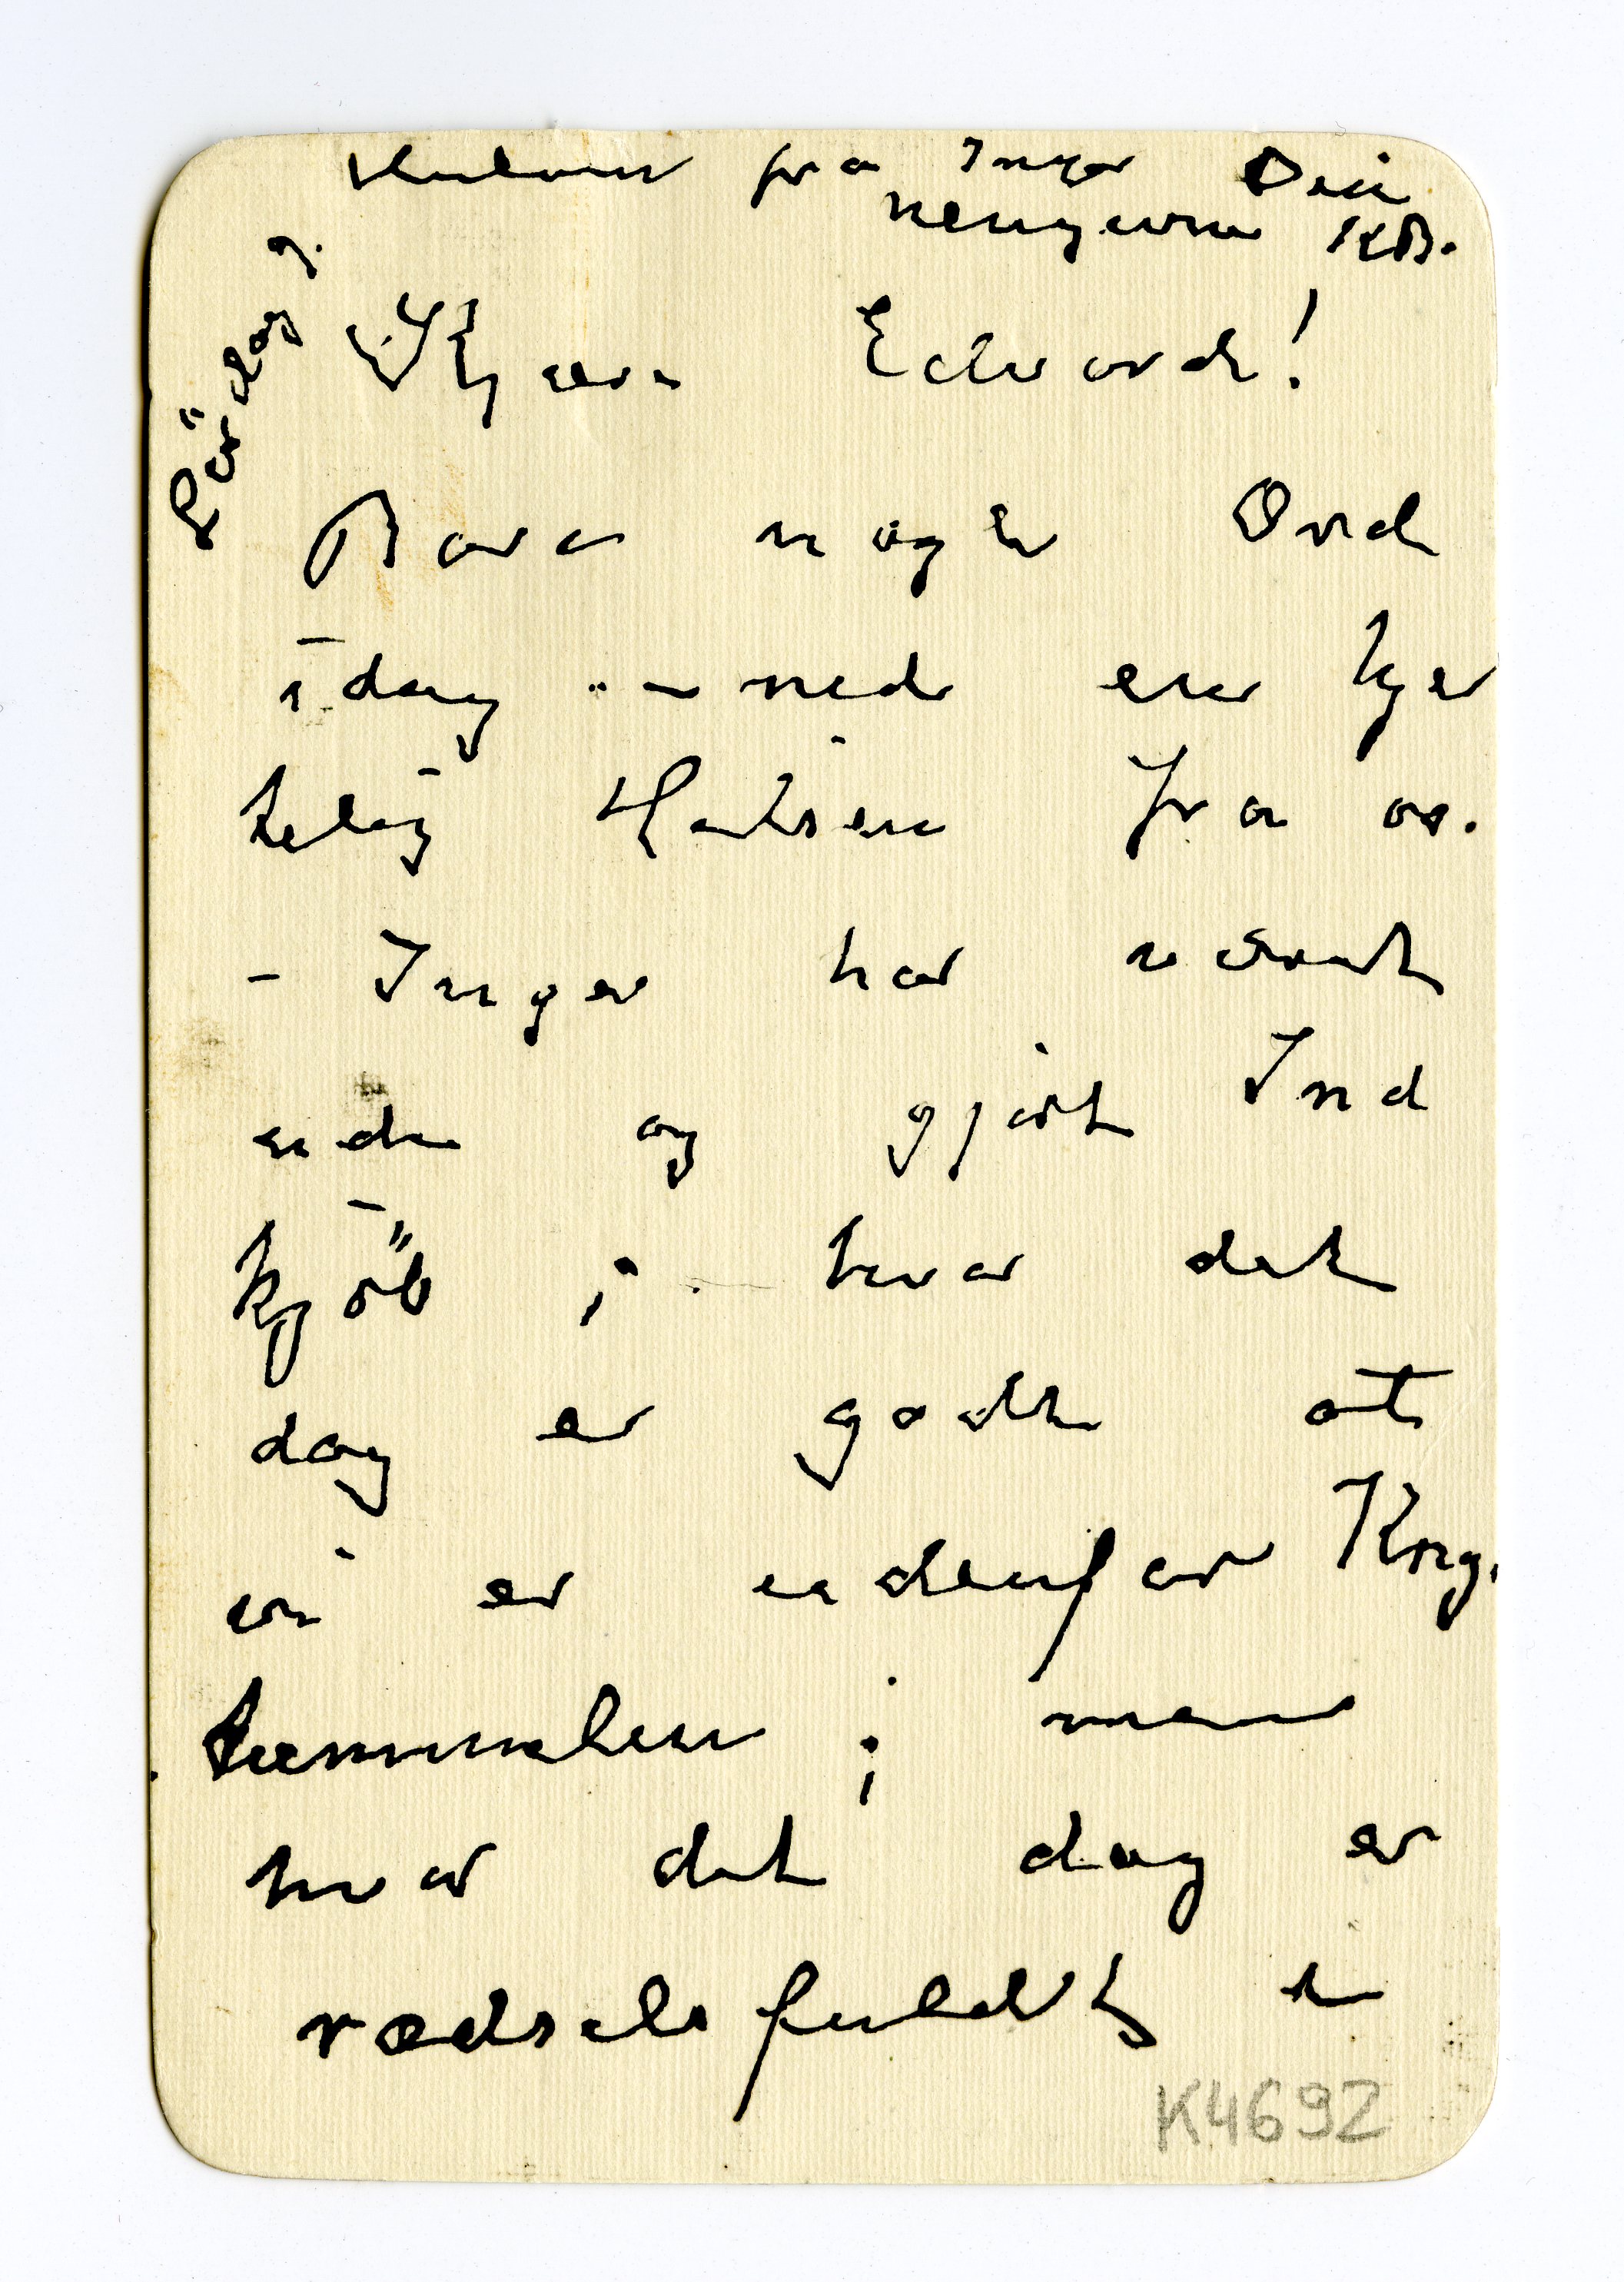 Hilsen fra Inger Din
hengivne KB.
Lördag 9.
Kjære Edvard!
Bare nogle Ord
idag – med en hjer
telig Hilsen fra os.
– Inger har været
ude og gjört Ind
kjöb ; hvor det
dog er godt at
vi er udenfor Krig.
tummelen ; men
hvor det dog er
rædselsfuldt
K4692